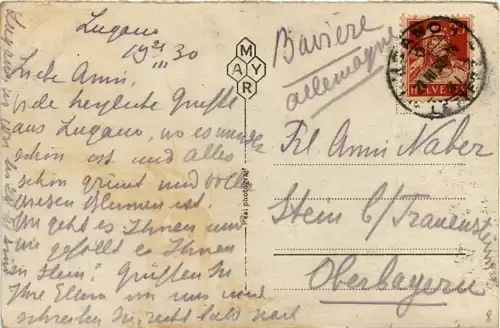 Lugano
19 21/III 30
Liebe Anni,
viele herzliche Grüße
aus Lugano, wo es
schön ist und alles
schön grünt und voller
Blumen ist.
Wie geht es Ihnen und
wie gefällt es Ihnen
in Stein? Grüßen Sie
Ihre Eltern von uns und
schreiben Sie recht bald
MAYR
Phot. photograf
Bavière
allemagne
HELVETIA
Frl Anni Naber
Stein b/Traunstein
Oberbayern